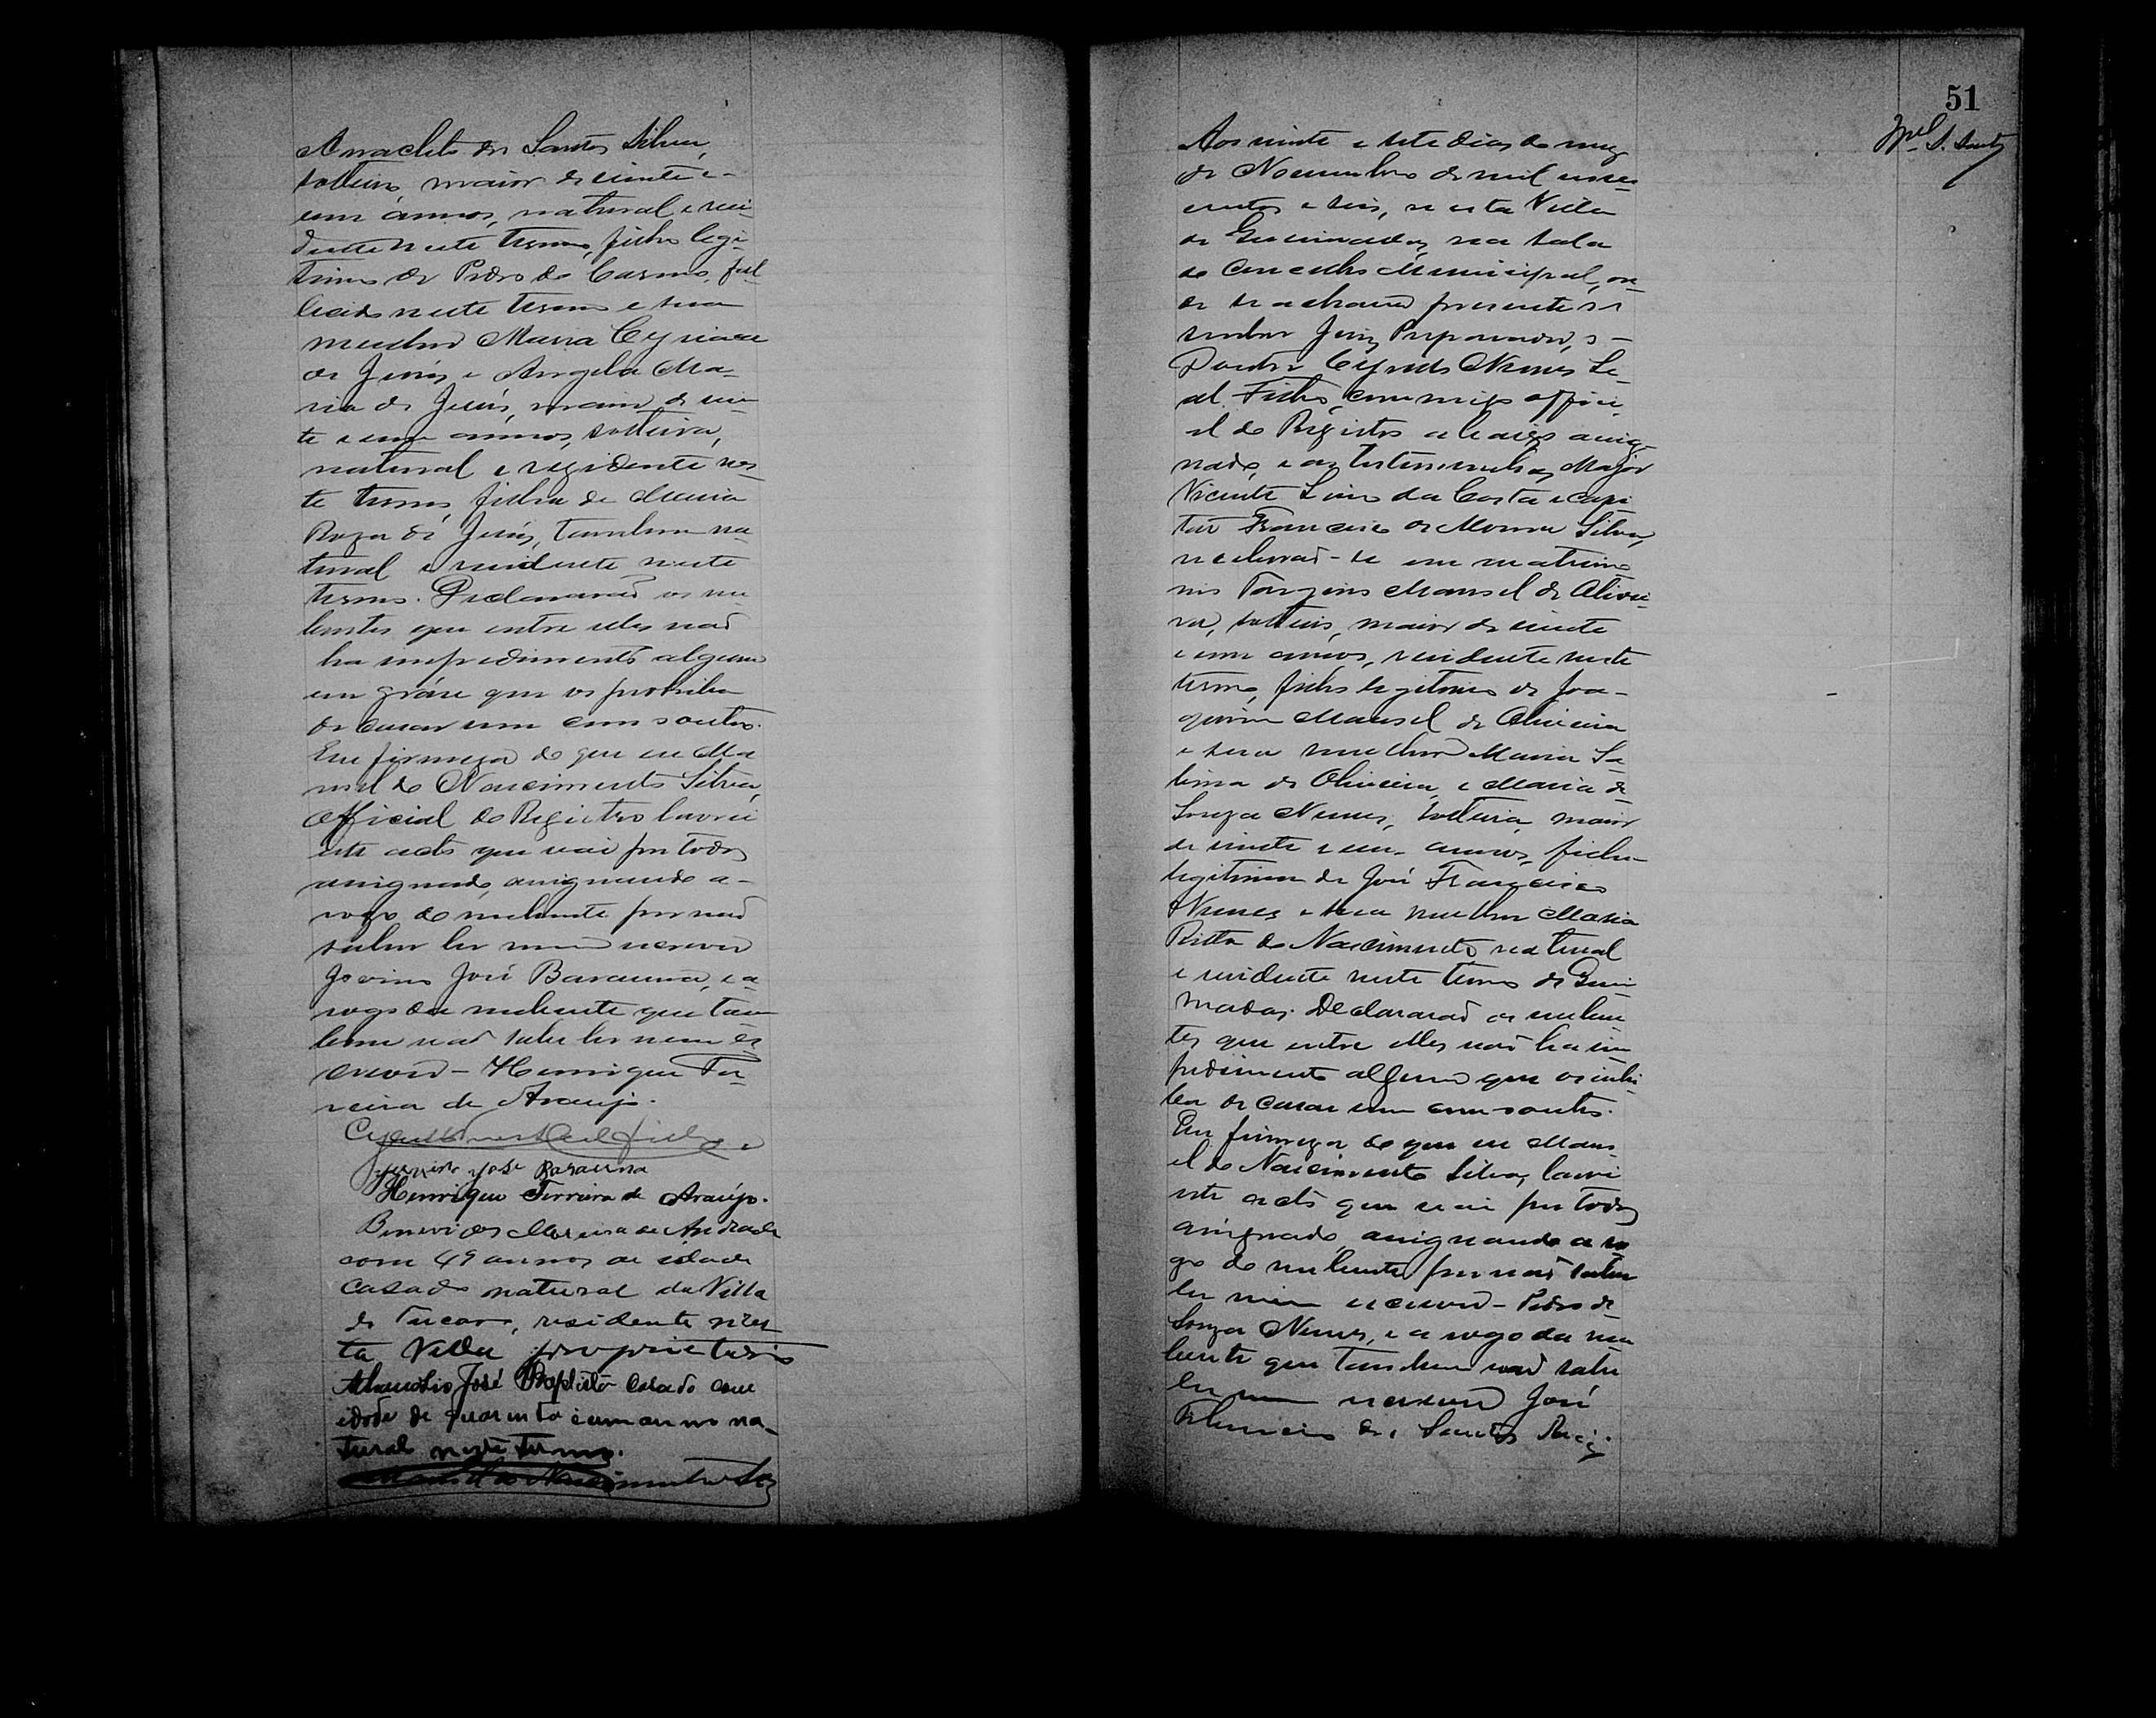 Anacleto dos Santos Silva,
solteiro, maior de vinte e
um annos, natural e resi-
dente neste termo, filho legi-
timo de Pedro do Carmo, fal-
lecido neste termo e sua
mulher Maria Cypriana
de Jesús e Angela Ma-
ria de Jesús, maior de vin-
te e um annos, solteira,
natural e rezidente nes-
te termo, filha de Maria
Roza de Jesús, tambem na-
tural e residente neste
termo. Declararaõ os nu-
bentes que entre elles naõ
ha impedimento algum
em gráu que os prohiba
de casar um com o outro.
Em firmeza do que eu Ma-
noel do Nascimento Silva,
Official do Registro lavrei
este acto que vai por todos
assignado, assignando a
rogo do nubente por naõ
saber ler nem escrever
Jovino José Barauna, e a
rogo da nubente que tam-
bem naõ sabe ler nem es-
crever - Henrique Fer-
reira de Araujo.
Jovino José Barauna
Henrique Ferreira de Araújo.
Benevides Moreira de Andrade
com 49 annos de idade
casado natural da Villa
de Tucano, residente nes-
ta Villa proprietario
José Baptista casado com
idade de quarenta e um anno na-
tural neste termo.
Manoel do Nascimento Sª
51
Aos vinte e sete dias do mez
de Novembro de mil nove-
centos e seis, nesta Villa
de Queimadas, na sala
do Conselho Municipal, on-
de se achava presente o
senhor Juiz Preparador, o
Doutor Nunes Le-
al Filho, commigo offici-
al do Registro abaixo assig-
nado, e as testemunhas Major
Vicente Lino da Costa e capi-
taõ Francisco de Moura Silva,
receberaõ-se em matrimo-
nio Manoel de Olivei-
ra, solteiro, maior de vinte
e um annos, residente neste
termo, filho legitimo de Joa-
quim Manoel de Oliveira
e sua mulher Maria Sa-
bina de Oliveira, e Maria de
Souza Nunes, solteira, maior
de vinte e um annos, filha
legitima de José Francisco
Nunes e sua mulher Maria
Ritta do Nascimento, natural
e residente neste termo de Quei-
madas. Declararaõ os nuben-
tes que entre elles naõ ha im-
pedimento algum que os inhi-
ba de casar um com o outro.
Em firmeza do que eu Mano-
el do Nascimento Silva, lavrei
este acto que vai por todos
assignado, assignando a ro-
go do nubente por naõ saber
ler nem escrever - Pedro de
Souza Nunes, e a rogo da nu-
bente que tambem naõ sabe
ler nem escrever José
dos Santos